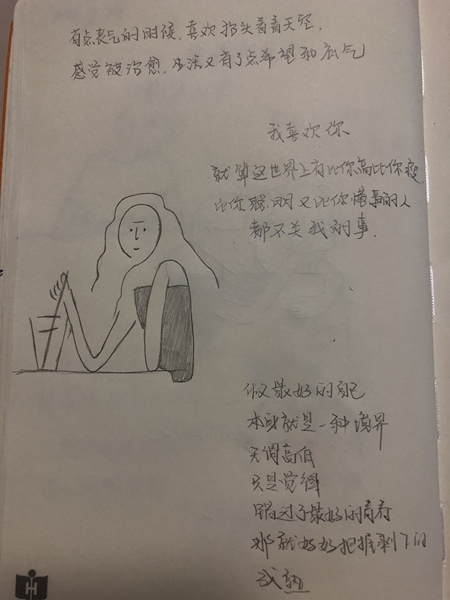 有点丧气的时候，喜欢抬头看看天空，
感觉被治愈，生活又有了点希望和底气
我喜欢你
就算这世界上有比你高比你瘦
比你聪明又比你懂事的人
都不关我的事.
做最好的自己
本身就是一种境界
无谓高低
只是觉得
错过了最好的青春
那就好好把握剩下的
成熟